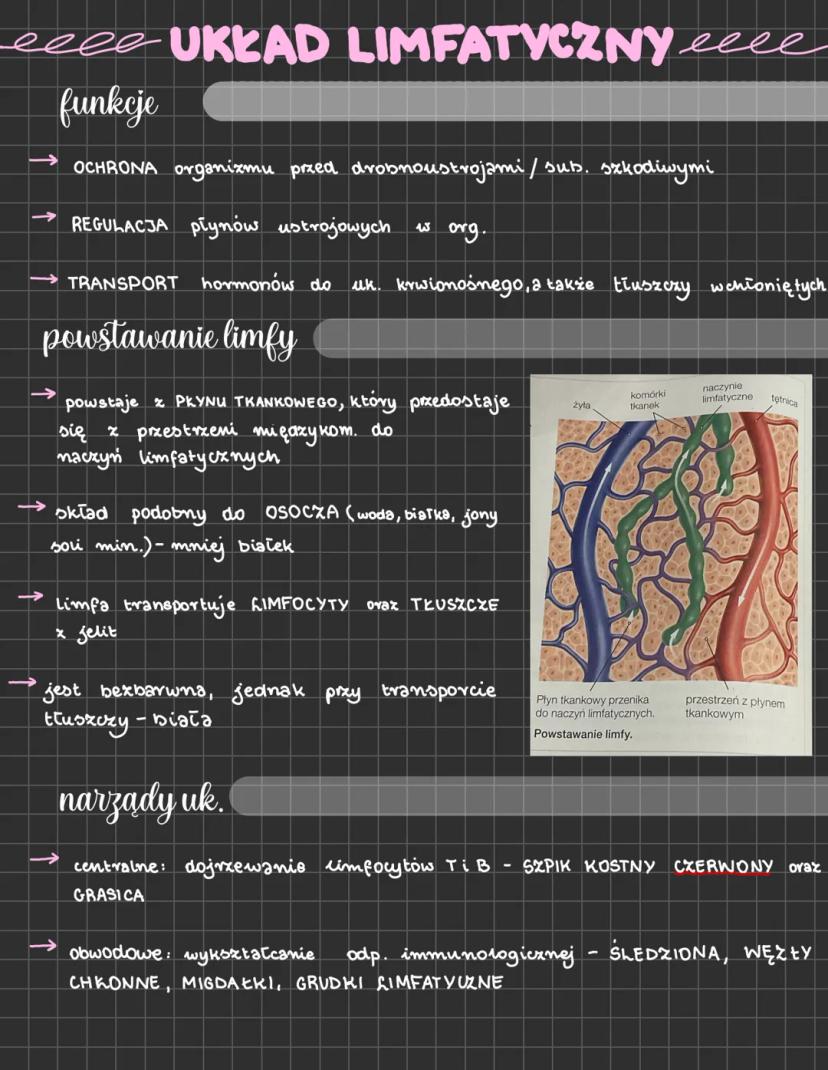 UKŁAD LIMFATYCZNY
funkcje
→ OCHRONA organizmu przed drobnoustrojami / sub. szkodiwymi
→ REGULACJA płynów ustrojowych w org.
→ TRANSPORT hormonów do uk. krwionośnego, a także tłuszczy wchłoniętych
powstawanie limfy
→ powstaje z PŁYNU TKANKOWEGO, który przedostaje
się z przestrzeni międzykom. do
naczyń limfatycznych
→ skład podobny do OSOCZA (woda, białka, jony
soli min.) - mniej białek
→ limfa transportuje LIMFOCYTY oraz TŁUSZCZE
z jelit
→ jest bezbarwna, jednak przy transporcie
tłuszczy - biała
żyła
komórki
tkanek
naczynie
limfatyczne
tętnica
Płyn tkankowy przenika
do naczyń limfatycznych.
przestrzeń z płynem
tkankowym
Powstawanie limfy.
narządy uk.
→ centralne: dojrzewanie limfocytów T i B - SZPIK KOSTNY CZERWONY oraz
GRASICA
→ obwodowe: wykształcanie odp. immunologicznej - ŚLEDZIONA, WĘZŁY
CHŁONNE, MIGDAŁKI, GRUDKI LIMFATYCZNE